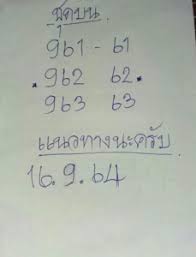 ชุดบน
961 - 61
.962 62.
963 63
แนวทางนะครับ
16.9.64